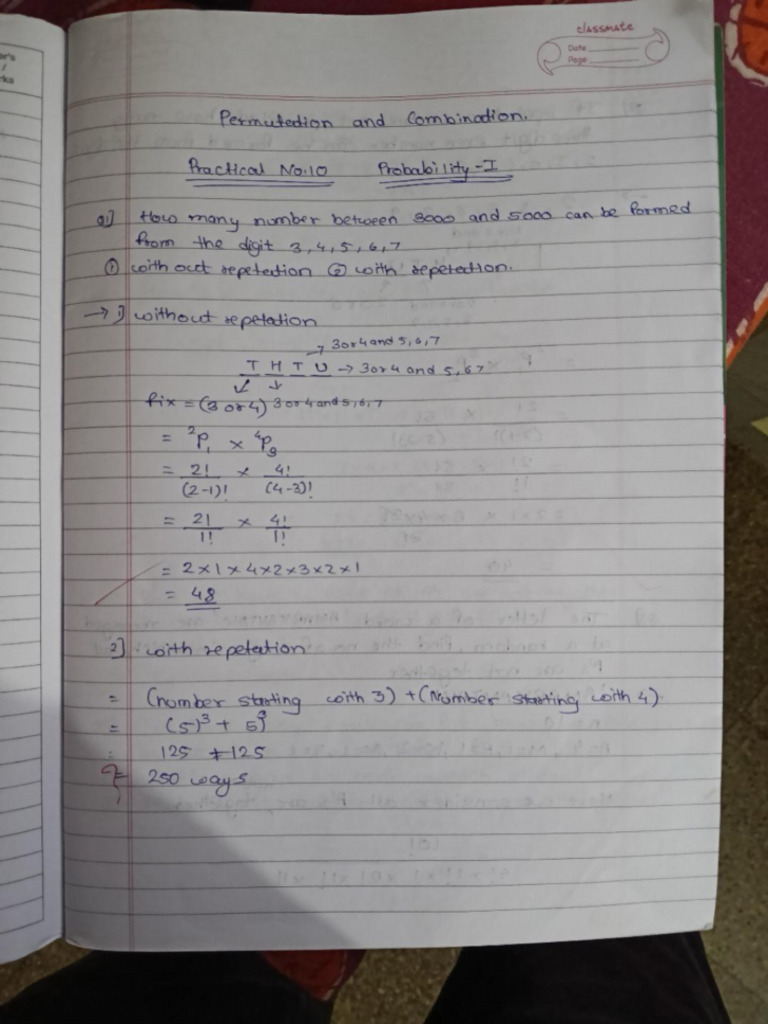 classmate
Date
Page
Permutedion and Combination.
Practical No.10 Probability-I
Q1] How many number between 3000 and 5000 can be formed
from the digit 3,4,5,6,7
① with out repetedion ② with repetedion.
→ 1] without repetation
→ 3 or 4 and 5,6,7
T H T U → 3 or 4 and 5,6 7
fix = (3 or 4) 3 or 4 and 5,6,7
= ²P₁ × ⁴P₃
= 2!/(2-1)! × 4!/(4-3)!
= 2!/1! × 4!/1!
= 2×1×4×2×3×2×1
= 48
2] with repetation
= (number starting with 3) + (Number starting with 4)
= (5)³ + 5)³
= 125 + 125
= 250 ways